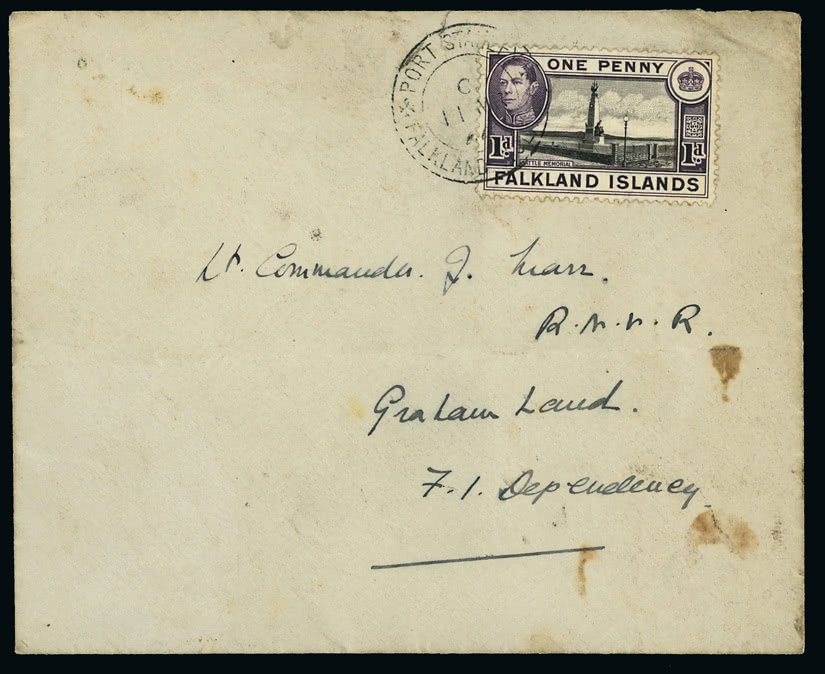 PORT STANLEY
FALKLAND
11
ONE PENNY
1d 1d
BATTLE MEMORIAL
FALKLAND ISLANDS
Lt. Commander. J. Marr.
R.N.V.R.
Graham Land.
F.I. Dependency